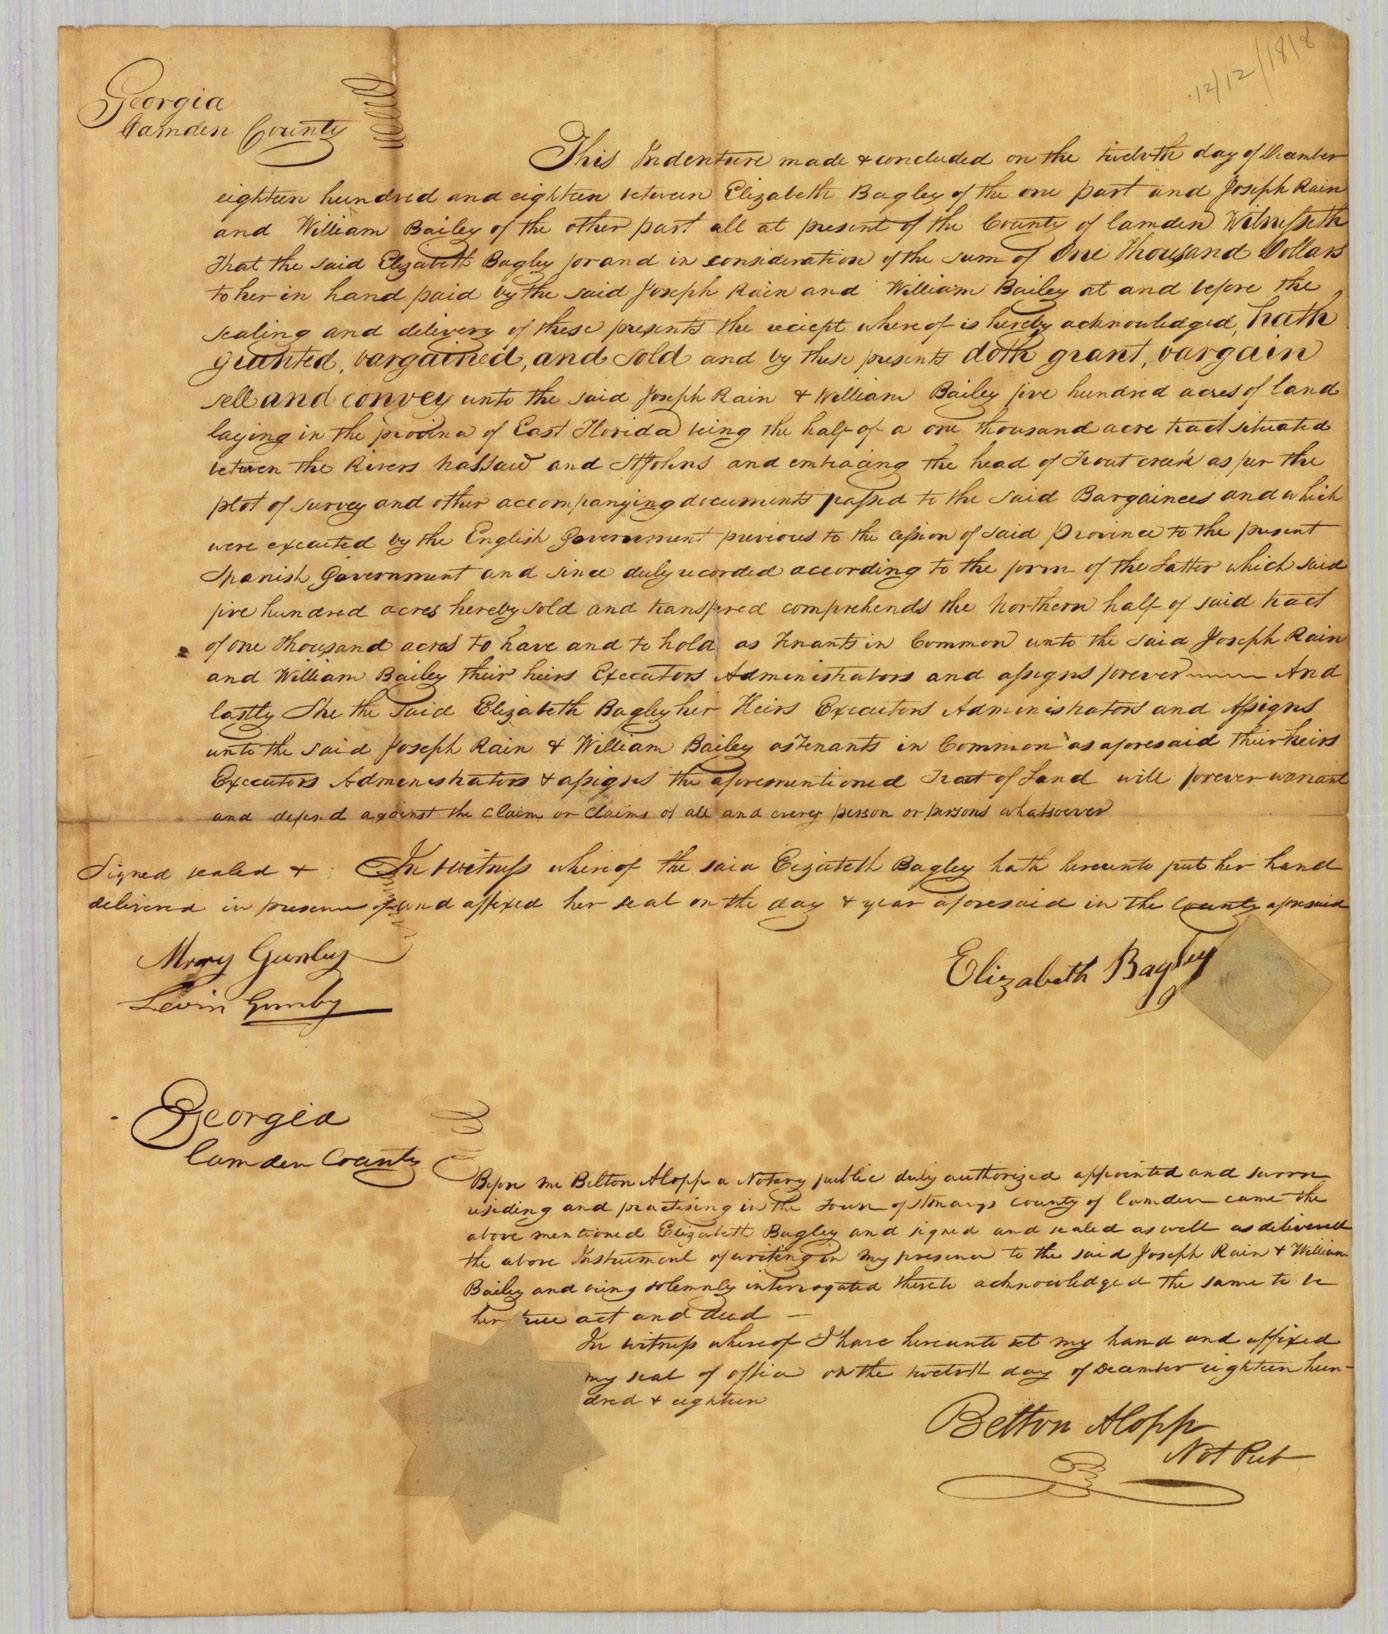 12/12/1818
Georgia
Camden County
This Indenture made & concluded on the twelvth day of December
eighteen hundred and eighteen between Elizabeth Bagley of the one part and Joseph Rain
and William Bailey of the other part all at present of the County of Camden Witnesseth
That the said Elizabeth Bagley for and in consideration of the sum of One Thousand Dollars
to her in hand paid by the said Joseph Rain and William Bailey at and before the
sealing and delivery of these presents the reciept where of is hereby acknowledged, hath
granted, bargained, and sold and by these presents doth grant, bargain
sell and convey unto the said Joseph Rain & William Bailey five hundred acres of land
laying in the province of East Florida being the half of a one thousand acre tract situated
between the Rivers Nassaw and St Johns and embracing the head of Trout creek as per the
plot of survey and other accompanying documents passed to the said Bargainees and which
were executed by the English Government previous to the cession of said Province to the present
Spanish Government and since duly recorded according to the form of the Latter which said
five hundred acres hereby sold and transfered comprehends the Northern half of said tract
of one thousand acres to have and to hold as tenants in Common unto the said Joseph Rain
and William Bailey their heirs Executors Administrators and assigns forever And
lastly She the said Elizabeth Bagley her Heirs Executors Administrators and Assigns
unto the said Joseph Rain & William Bailey as Tenants in Common as aforesaid their heirs
Executors Administrators & assigns the aforementioned Tract of Land will forever warrant
and defend against the claim or claims of all and every person or persons whatsoever
Signed sealed & In witness whereof the said Elizabeth Bagley hath hereunto put her hand
delivered in presence of and affixed her seal on the day & year aforesaid in the County aforesaid
Mary Gunby
Levin Gunby
Elizabeth Bagley
Georgia
Camden County
Before me Belton A Copp a Notary public duly authorized appointed and sworn
residing and practising in the Town of St Marys County of Camden came the
above mentioned Elizabeth Bagley and signed and sealed as well as delivered
the above Instrument of writing in my presence to the said Joseph Rain & William
Bailey and being solemnly interrogated thereto acknowledged the same to be
her free act and deed
In witness whereof I have hereunto set my hand and affixed
my seal of office on the twelvth day of December eighteen hun-
dred & eighteen
Belton A Copp
Not Pub